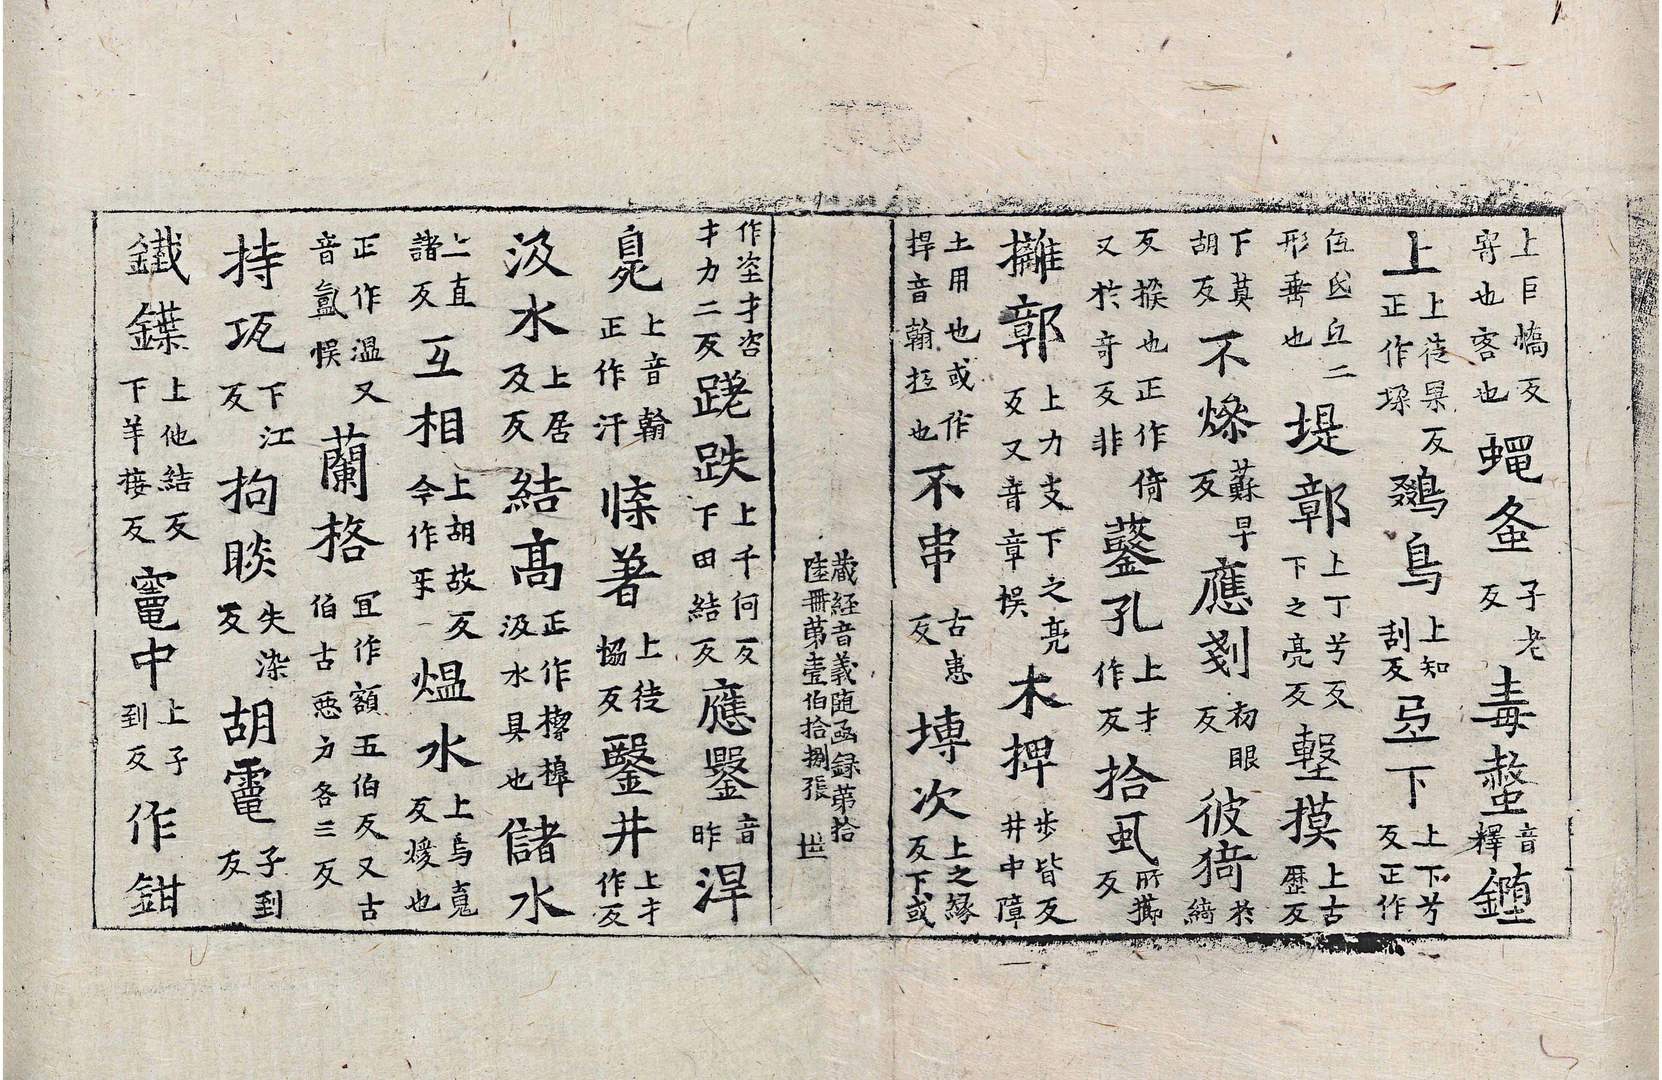 上巨憍反寄也客也蝿蚤子老反毒螫音釋鏂
上上徒杲反正作垛鵽鳥上知刮反𠱾下上下兮反正作
伍氐丘二形垂也堤鄣上丁兮反下之亮反墼摸上古歷反
下莫胡反不燥蘇早反應剗初眼反彼猗於綺
反掑也正作倚又於奇反非鏧孔上才作反拾虱所擲反
攡鄣上力支反又音章悮下之亮木捭步皆反井中障
土用也或作捍音翰抂也不串古患反塼次上之緣反下或
藏經音義隨函録第拾陸冊第壹伯拾捌張
作垐才咨才力二反蹉跌上千何反下田結反應鑿音昨涆
㲋上音翰正作汗㡒著上徒協反鑿井上才作反
汲水上居及反結高正作桔槔汲水具也儲水
上直諸反互相上胡故反今作㸦熅水上烏寬反煖也
正作温又音氳悮蘭格冝作額五伯反又古伯古惡力各三反
持瓨下江反拘睒失染反胡竈子到反
鐵鍱上他結反下羊接反竈中上子到反作鉗